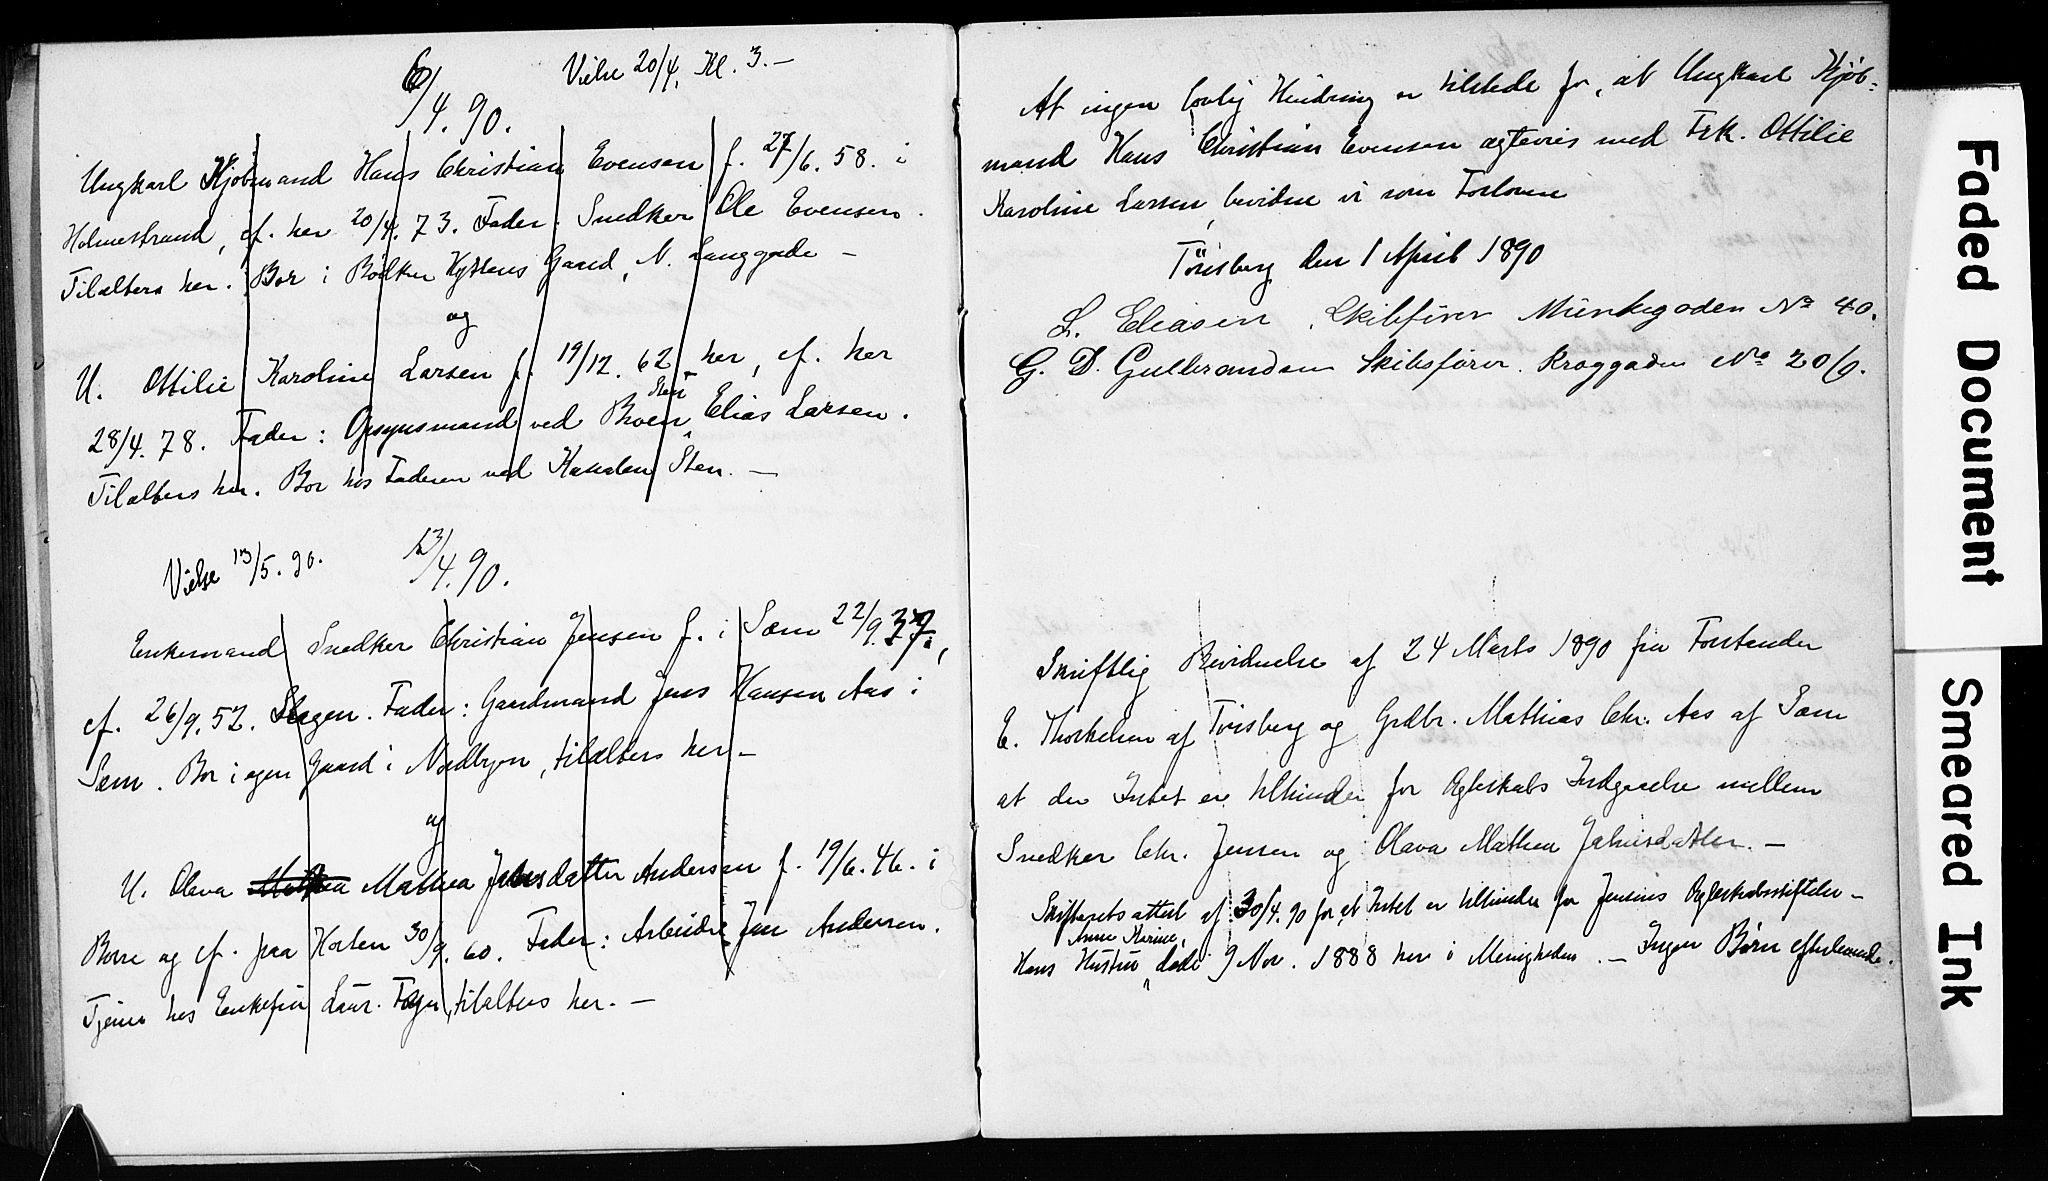 6/4. 90. Vielse 20/4. Kl. 3. —
Ungkarl Kjøbmand Hans Christian Evensen f. 27/6. 58. i
Holmestrand, cf. her 20/4. 73. Fader: Snedker Ole Evensen.
Tilalters her. Bor i Bødker Gaard, N. Langgade —
og
U. Ottilie Karoline Larsen f. 19/12. 62 her, cf. her
28/4. 78. Fader: Opsynsmand ved Broen Sten Elias Larsen.
Tilalters her. Bor hos Faderen ved Kanalen Sten. —
Vielse 13/5. 90. 13/4. 90.
Enkemand Snedker Christian Jensen f. i Sæm 22/9. 37.,
cf. 26/9. 52. Slagen. Fader: Gaardmand Jens Hansen Aas i
Sæm. Bor i egen Gaard i Nordbyen, tilalters her —
og
U. Olava Mathea Mathea Jahnsdatter Andersen f. 19/6. 46. i
Borre og cf. paa Horten 30/9. 60. Fader: Arbeider Jan Andersen.
Tjener hos Enkefru Laur. Foyn, tilalters her. —
At ingen lovlig Hindring er tilstede for, at Ungkarl Kjøb=
mand Hans Christian Evensen ægtevies med Frk. Ottilie
Karoline Larsen, bevidne vi som Forlovere
Tønsberg den 1 April 1890
L. Eliasen, Skibfører Munkegaden No 40.
G. D. Gulbrandsen Skibsfører. Kroggaden No 20/9.
Skriftlig Bevidnelse af 24 Marts 1890 fra Forstander
E. Thorkelsen af Tønsberg og Grdbr. Mathias Chr. Aas af Sæm
at der Intet er tilhinder for Ægteskabs Indgaaelse mellem
Snedker Chr. Jensen og Olava Mathea Jahnsdatter. —
Skifteretsattest af 30/4. 90 for, at Intet er tilhinder for Jensens Ægteskabsstiftelse —
Hans Hustru Anne Karine, døde 9 Nov. 1888 her i Menigheden. — Ingen Børn efterlevende.
Faded Document
Smeared Ink